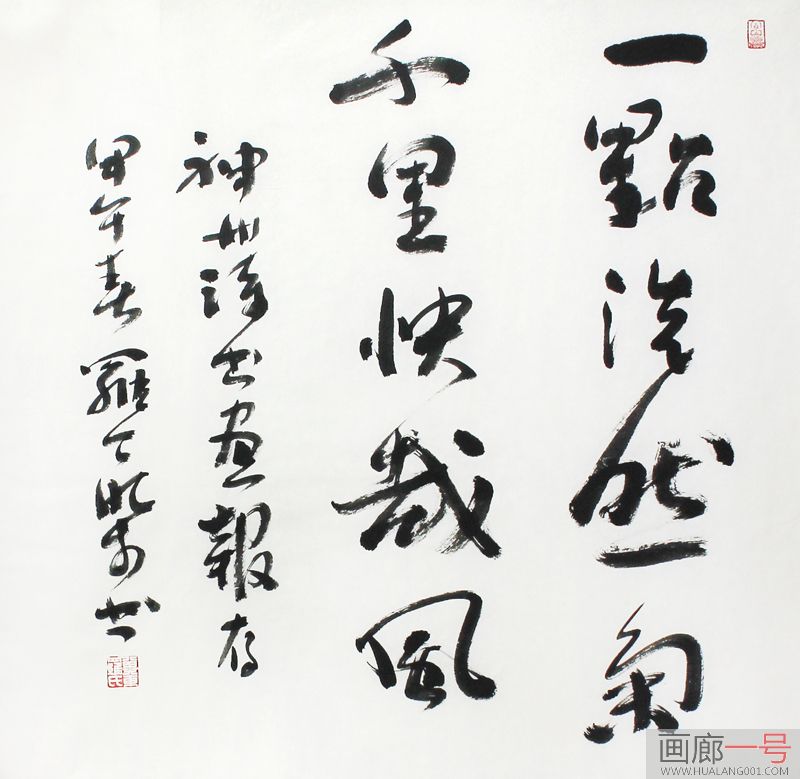 一點浩然氣
千里快哉風
神州詩书畫報存
甲午春羅书
画廊一号
WWW.HUALANG001.COM